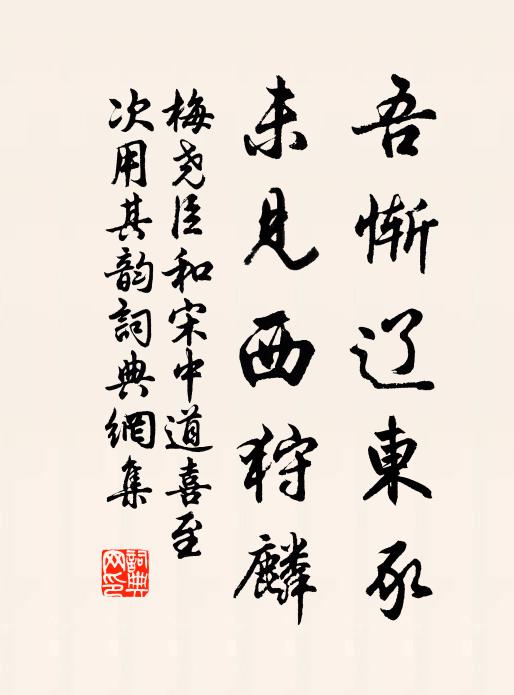 吾慚辽東豕
未見西狩麟
梅尧臣和宋中道喜至
次用其韵詞典網集
詞典网印